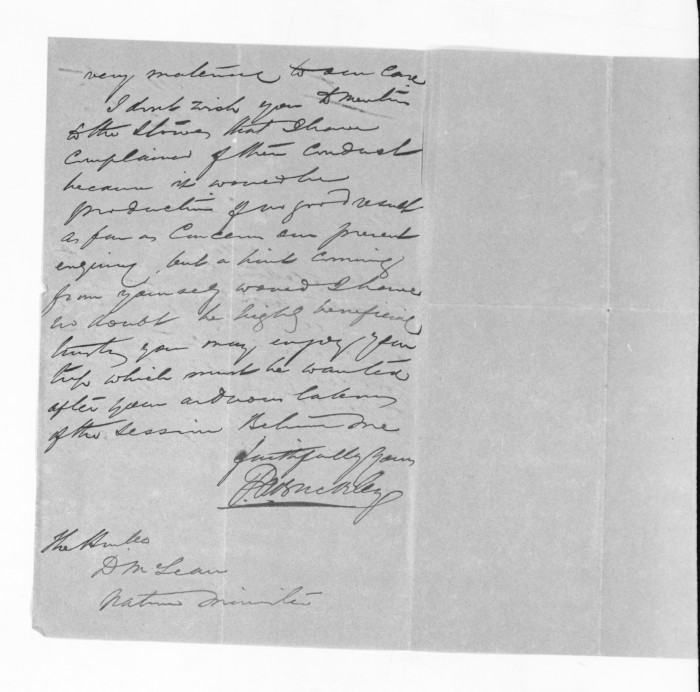 very material to our case
I dont wish you to mention
to the that I have
complained of their conduct
because it would be
productive of no good result
as far as concern our present
enquiry, but a hint coming
from yourself would I have
no doubt be highly beneficial
trusting you may enjoy your
trip which must be wanted
after your arduous labours
of the session Believe me
faithfully yours
Buckley
The Honble
D McLean
Native Minister